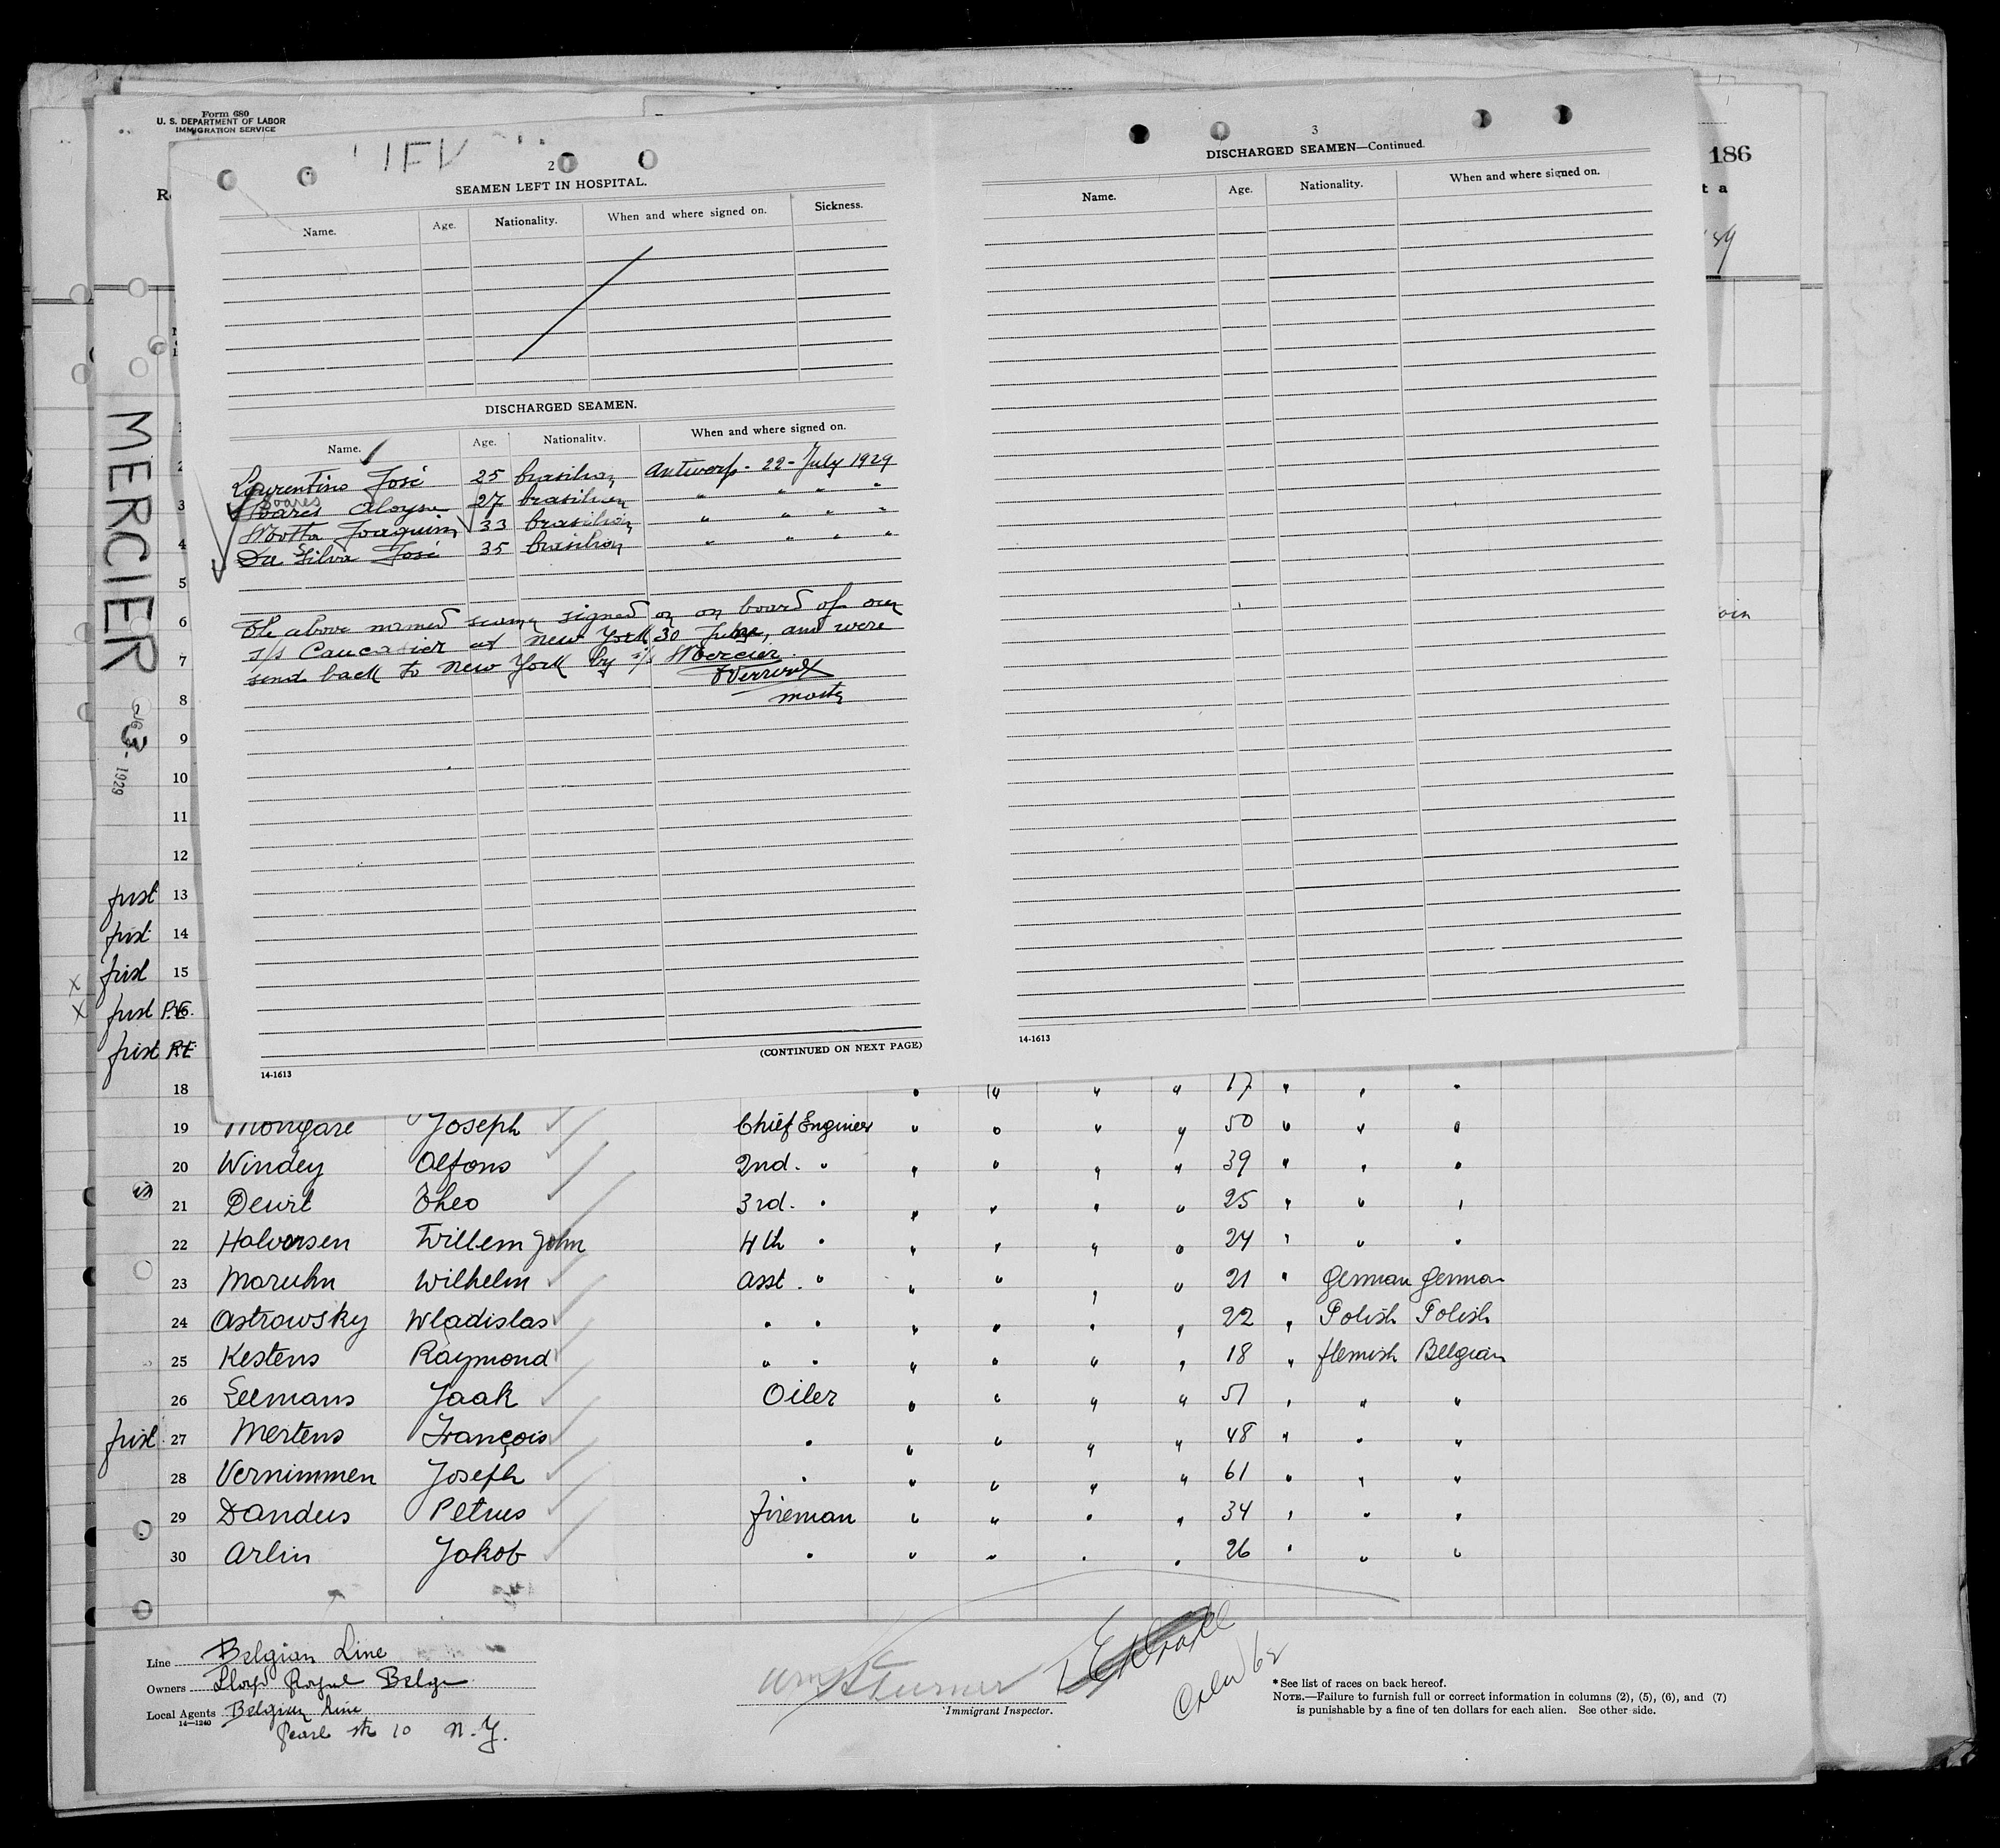 Form 680
U. S. DEPARTMENT OF LABOR
IMMIGRATION SERVICE
186
t a
2
SEAMEN LEFT IN HOSPITAL.
Name. Age. Nationality. When and where signed on. Sickness.
DISCHARGED SEAMEN.
Name. Age. Nationality. When and where signed on.
Laurentino José 25 brasilian Antwerp - 22 - July 1929
Soares Aloyse 27 brasilian " " " "
Motta Joaquim 33 brasilian " " " "
Da Silva José 35 brasilian " " " "
The above named seamen signed on on board of our
s/s Caucasier at New York 30 June, and were
send back to New York by s/s Mercier.
(CONTINUED ON NEXT PAGE)
14-1613
3
DISCHARGED SEAMEN—Continued.
Name. Age. Nationality. When and where signed on.
14-1613
MERCIER
3 - 1929
2
3
4
5
6
7
8
9
10
11
12
first 13
first 14
first 15
first P.E.
first P.E.
18 " " " " 17 " " "
19 Mongare Joseph Chief Engineer " " " " 50 " " "
20 Windey Alfons 2nd. " " " " " 39 " " "
21 Dewit Theo 3rd. " " " " " 25 " " "
22 Halvorsen Willem John 4th " " " " " 24 " " "
23 Moruhn Wilhelm asst. " " " " " 21 " German German
24 Ostrowsky Wladislas " " " " " " 22 " Polish Polish
25 Kestens Raymond " " " " " " 18 " flemish Belgian
26 Eeemans Jaak Oiler " " " " 51 " " "
first 27 Mertens François " " " " " 48 " " "
28 Vernimmen Joseph " " " " " 61 " " "
29 Dandus Petrus fireman " " " " 34 " " "
30 Arlin Jakob " " " " " 26 " " "
Line Belgian Line
Owners Lloyd Royal Belge
Local Agents Belgian Line
14-1240
Pearl str 10 N.Y.
Immigrant Inspector.
* See list of races on back hereof.
NOTE.—Failure to furnish full or correct information in columns (2), (5), (6), and (7)
is punishable by a fine of ten dollars for each alien. See other side.